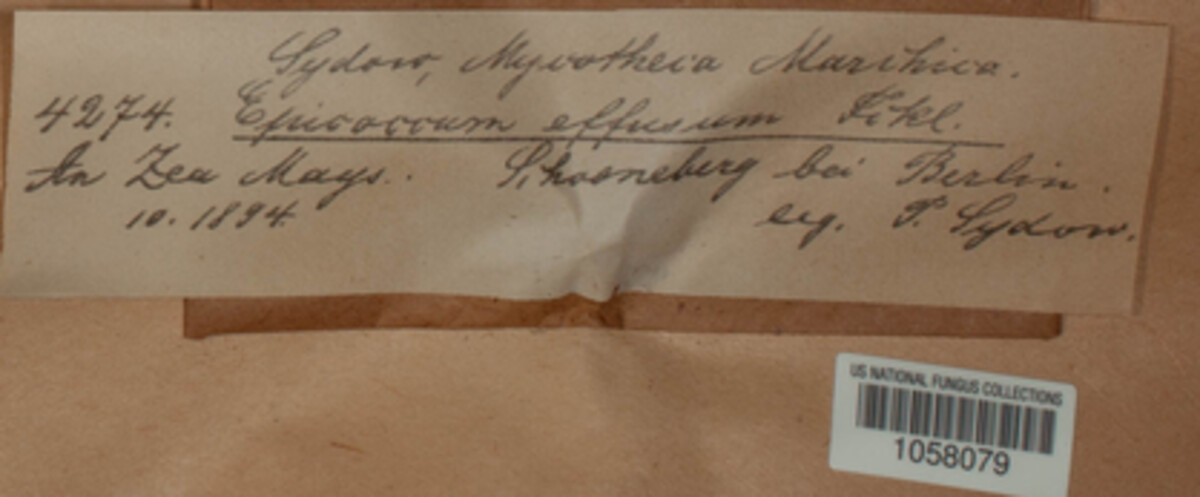 Sydow, Mycotheca Marchica.
4274. Epicoccum effusum Fckl.
An Zea Mays. Schoeneberg bei Berlin.
10. 1894. leg. P. Sydow.
US NATIONAL FUNGUS COLLECTIONS
1058079